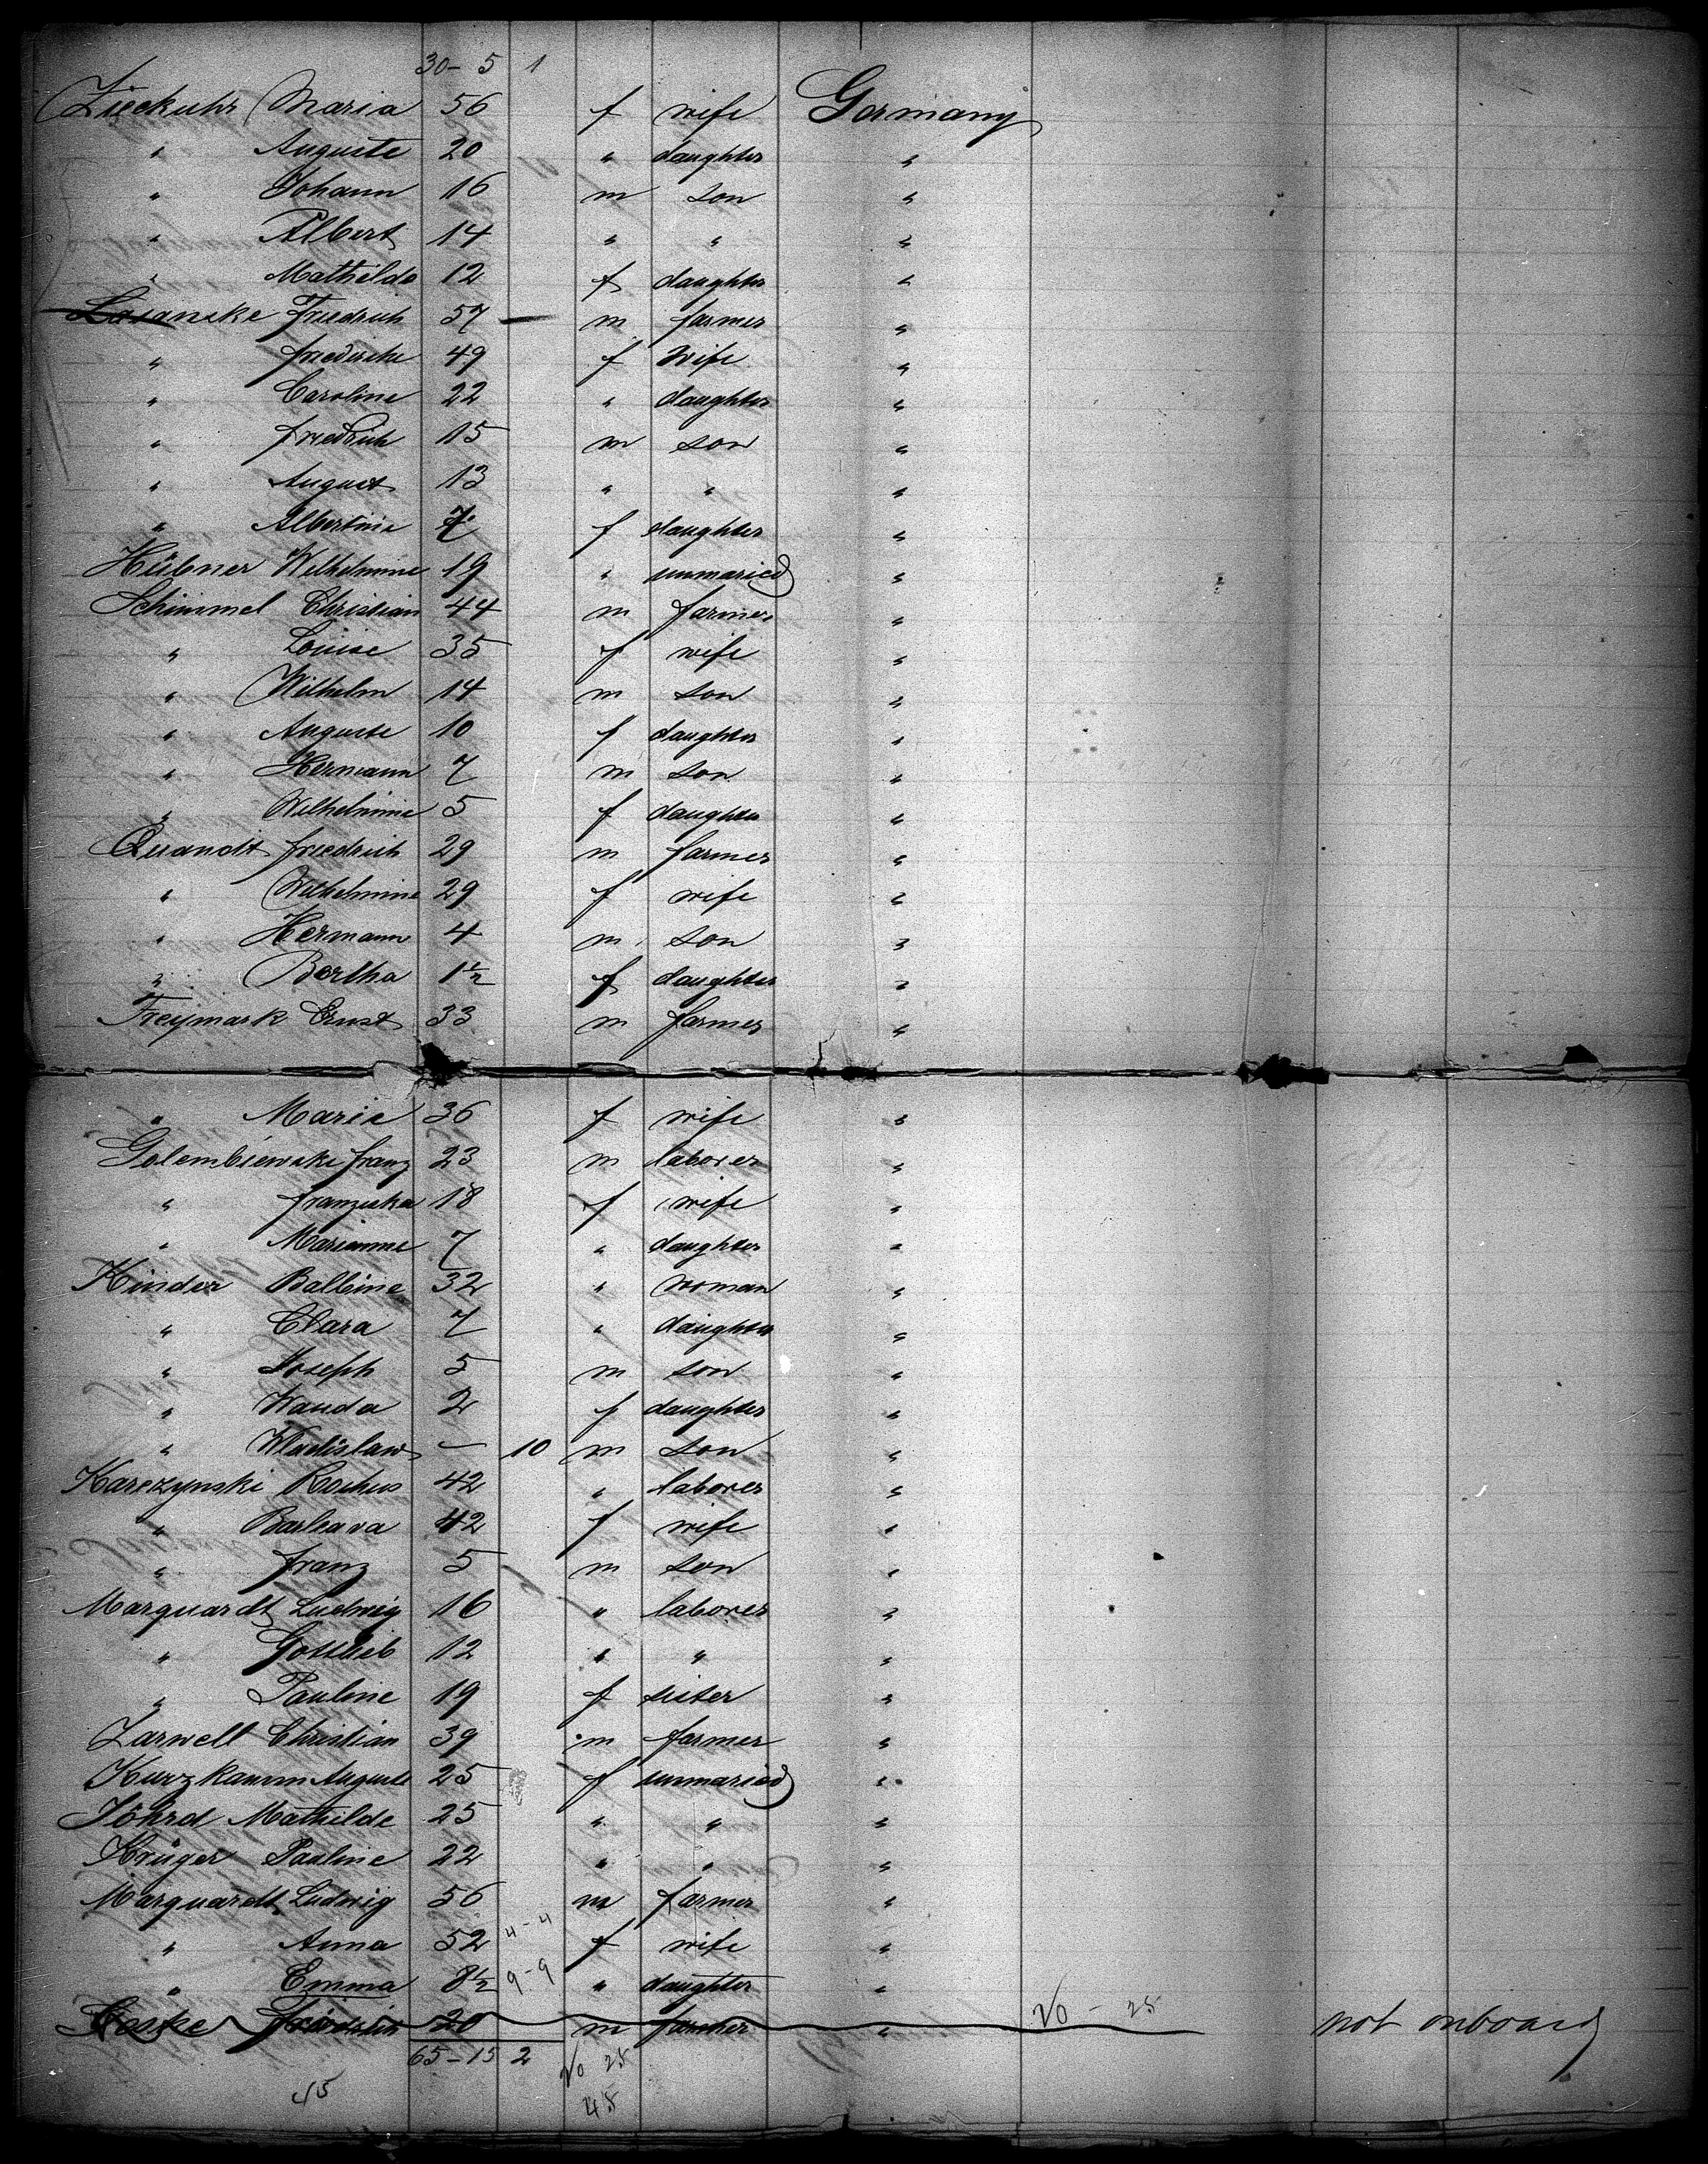 30- 5 1
Zieckuhr Maria 56 f wife Germany
" Auguste 20 " daughter "
" Johann 16 m son "
" Albert 14 " " "
" Mathilde 12 f daughter "
Friedrich 57 — m farmer "
" friedericke 49 f wife "
" Caroline 22 " daughter "
" friedrich 15 m son "
" August 13 " " "
" Albertine 7 f daughter "
Hübner Wilhelmine 19 " unmaried "
Schimmel Christian 44 m farmer "
" Louise 35 f wife "
" Wilhelm 14 m son "
" Auguste 10 f daughter "
" Hermann 7 m son "
" Wilhelmine 5 f daughter "
Quandt friedrich 29 m farmer "
" Wilhelmine 29 f wife "
" Hermann 4 m son "
" Bertha 1½ f daughter "
Freymark Ernst 33 m farmer "
" Marie 36 f wife "
Golembiewski franz 23 m laborer "
" franziska 18 f wife "
" Marianne 7 " daughter "
Kinder Balbine 32 " woman "
" Clara 7 " daughter "
" Joseph 5 m son "
" Wanda 2 f daughter "
" Wladislaw — 10 m son "
Karczynski Rochus 42 " laborer "
" Barbara 42 f wife "
" franz 5 m son "
Marquardt Ludwig 16 " laborer "
" Gottlieb 12 " " "
" Pauline 19 f sister "
Zarwell Christian 39 m farmer "
Kurzkamm Auguste 25 f unmaried "
Jöhrd Mathilde 25 " " "
Krüger Pauline 22 " " "
Marquardt Ludwig 56 m farmer "
" Anna 52 4-4 f wife "
" Emma 8½ 9-9 " daughter "
20 m farmer " 20 - 25 not onboard
65-15 2 20 25
45 45